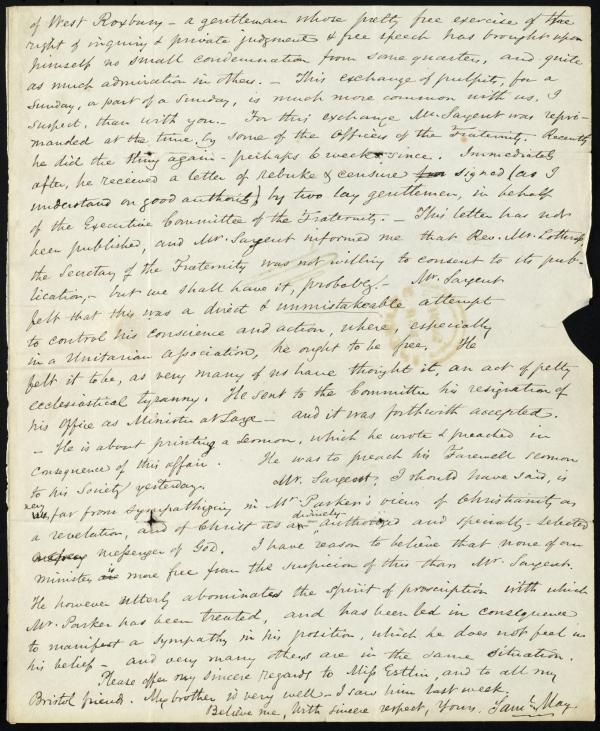 of West Roxbury – a gentleman whose pretty free exercise of the
right of inquiry & private judgment & free speech has brought upon
himself no small condemnation from some quarters, and quite
as much admiration in others. – This exchange of pulpits, for a
Sunday, or part of a Sunday, is much more common with us, I
suspect, than with you. – For this exchange Mr. Sargent was repri-
manded at the time, by some of the Officers of the Fraternity. Recently
he did the thing again – perhaps 6 weeks since. Immediately
after, he received a letter of rebuke & censure signed (as I
understand on good authority) by two lay gentlemen, in behalf
of the Executive Committee of the Fraternity. – This letter has not
been published, and Mr. Sargent informed me that Rev. Mr. Lothrop
the Secretary of the Fraternity was not willing to consent to its pub-
lication, – but we shall have it, probably. – Mr. Sargent
felt that this was a direct & unmistakeable attempt
to control his conscience and action, where, especially
in a Unitarian Association, he ought to be free. He
felt it to be, as very many of us have thought it, an act of petty
ecclesiastical tyranny. He sent to the Committee his resignation of
his Office as Minister at Large – and it was forthwith accepted.
– He is about printing a Sermon, which he wrote & preached in
consequence of this affair. He was to preach his Farewell sermon
to his Society yesterday. Mr. Sargent, I should have said, is
very far from sympathizing in Mr. Parker's views of Christianity as
a revelation, and of Christ as an divinely authorized and specially-selected
messenger of God. I have reason to believe that none of our
ministers is more free from the suspicion of this than Mr. Sargent.
He however utterly abominates the spirit of proscription with which
Mr. Parker has been treated, and has been led in consequence
to manifest a sympathy in his position, which he does not feel in
his belief – and very many others are in the same situation.
Please offer my sincere regards to Miss Estlin, and to all my
Bristol friends. My brother is very well – I saw him last week.
Believe me, with sincere respect, Yours, Saml. May.